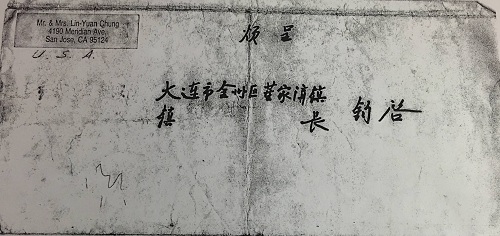 Mr. & Mrs. Lin-Yuan Chung
4190 Meridian Ave.
San Jose, CA 95124
U. S. A.
烦呈
大连市金州区董家沟镇
镇长 钧启